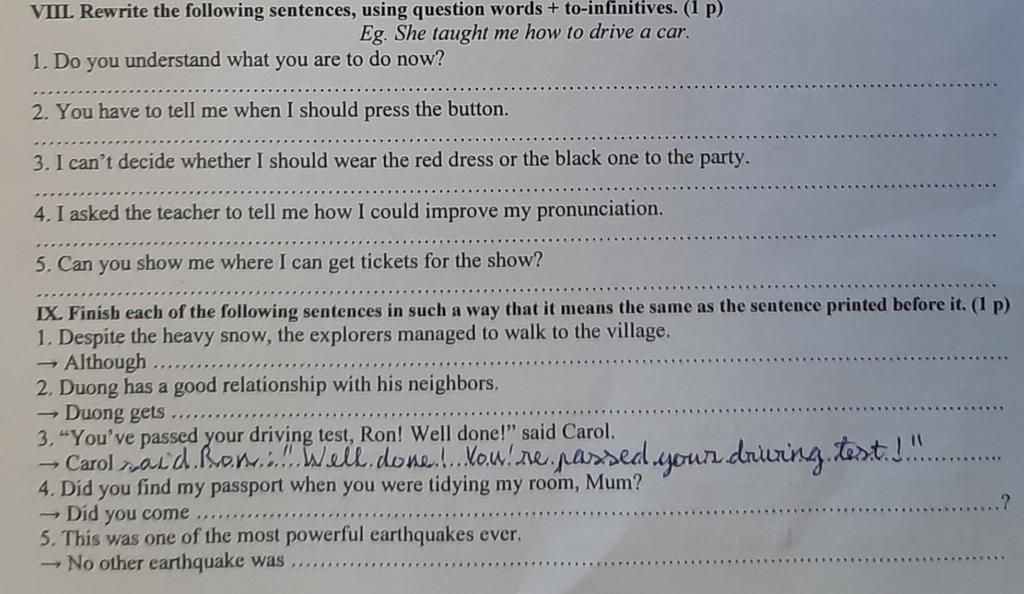 VIII. Rewrite the following sentences, using question words + to-infinitives. (1 p)
Eg. She taught me how to drive a car.
1. Do you understand what you are to do now?
2. You have to tell me when I should press the button.
3. I can't decide whether I should wear the red dress or the black one to the party.
4. I asked the teacher to tell me how I could improve my pronunciation.
5. Can you show me where I can get tickets for the show?
IX. Finish each of the following sentences in such a way that it means the same as the sentence printed before it. (1 p)
1. Despite the heavy snow, the explorers managed to walk to the village.
→ Although ....................
2. Duong has a good relationship with his neighbors.
→ Duong gets ....................
3. "You've passed your driving test, Ron! Well done!" said Carol.
→ Carol said Ron: "Well done! You're passed your driving test!"
4. Did you find my passport when you were tidying my room, Mum?
→ Did you come ....................?
5. This was one of the most powerful earthquakes ever.
→ No other earthquake was ....................